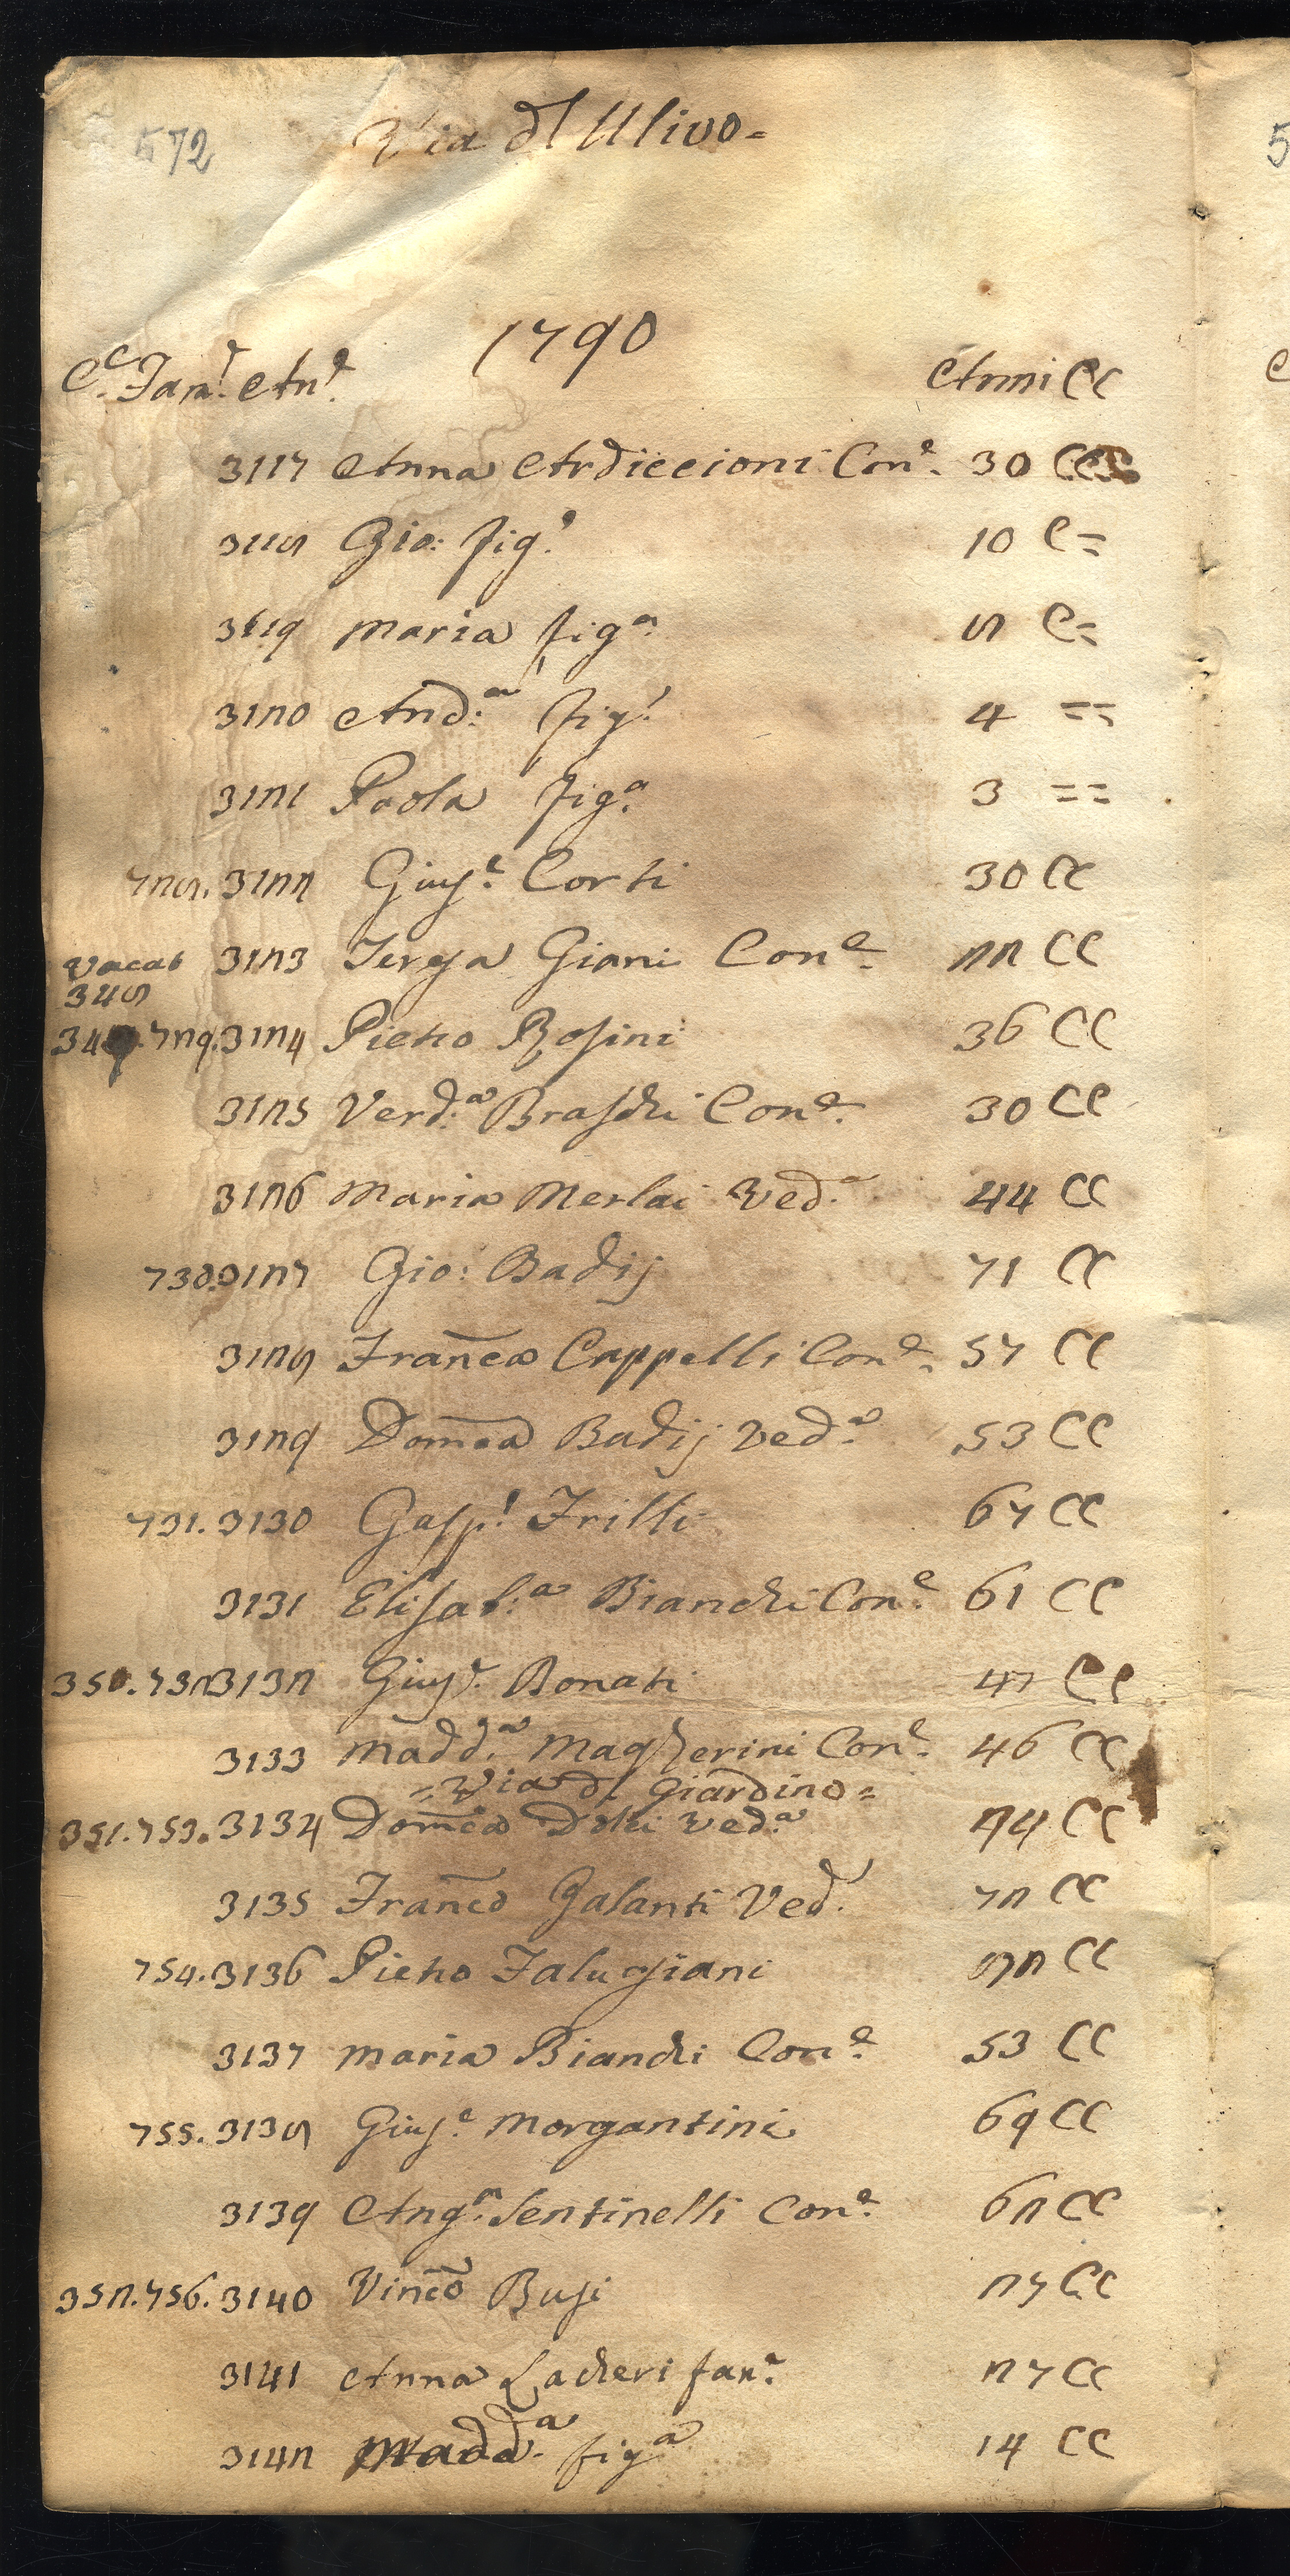 572 Via dl Ulivo=
1790
Ce. Fam.e An.e Anni CC
3117 Anna Ardiccioni Con.e 30 CC
3118 Gio: fig.o 10 C=
3119 Maria fig.a 8 C=
3120 And.a fig.o 4 ==
3121 Paola fig.a 3 ==
728. 3122 Gius.e Corti 30 CC
vacat 3123 Teresa Giani Con.e 22 CC
348
729. 3124 Pietro Rosini 36 CC
3125 Verd.a Braschi Con.e 30 CC
3126 Maria Merlai Ved.a 44 CC
730. 3127 Gio: Badij 71 CC
3128 Franca Cappelli Con.e 57 CC
3129 Domca Badij Ved.a 53 CC
731. 3130 Gasp.e Frilli 67 CC
3131 Elisab.a Bianchi Con.e 61 CC
350. 732 3132 Gius.e Bonati 47 CC
3133 Madd.a Magherini Con.e 46 CC
= Via dl Giardino =
351. 753. 3134 Domca Dolci Ved.a 74 CC
3135 Franco Galanti Ved.o 72 CC
754. 3136 Pietro Falugiani 82 CC
3137 Maria Bianchi Con.e 53 CC
755. 3138 Gius.e Morgantini 69 CC
3139 Ang.a Sentinelli Con.e 62 CC
352. 756. 3140 Vinco Busi 27 CC
3141 Anna Lacheri fan.a 27 CC
3142 Madd.a fig.a 14 CC